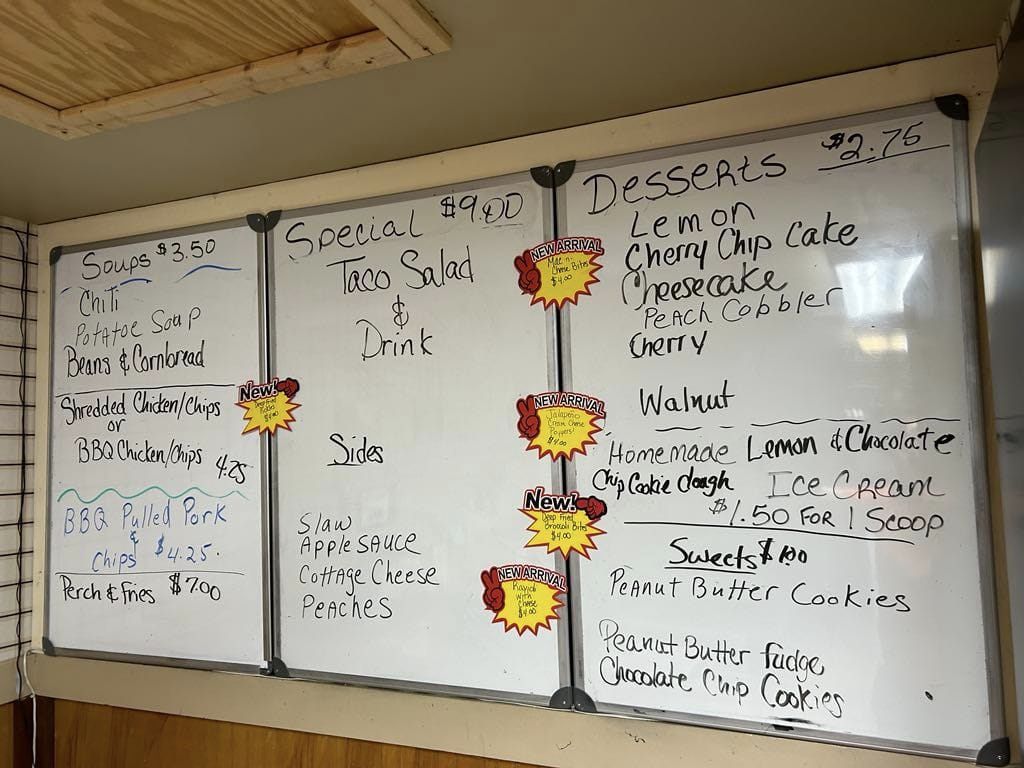 Soups $3.50
Chili
Potatoe Soup
Beans & Cornbread
Shredded Chicken/Chips
or
BBQ Chicken/Chips 4.25
BBQ Pulled Pork
&
Chips $4.25.
Perch & Fries $7.00
New!
Deep Fried
Pickles
$4.00
Special $9.00
Taco Salad
&
Drink
Sides
Slaw
Applesauce
Cottage Cheese
Peaches
NEW ARRIVAL
Mac n
Cheese Bites
$4.00
NEW ARRIVAL
Jalapeño
Cream Cheese
Poppers
$4.00
New!
Deep Fried
Broccoli Bites
$4.00
NEW ARRIVAL
with
Cheese
$4.00
Desserts $2.75
Lemon
Cherry Chip Cake
Cheesecake
Peach Cobbler
Cherry
Walnut
Homemade Lemon & Chocolate
Chip Cookie dough Ice Cream
$1.50 For 1 Scoop
Sweets $1.00
Peanut Butter Cookies
Peanut Butter fudge
Chocolate Chip Cookies